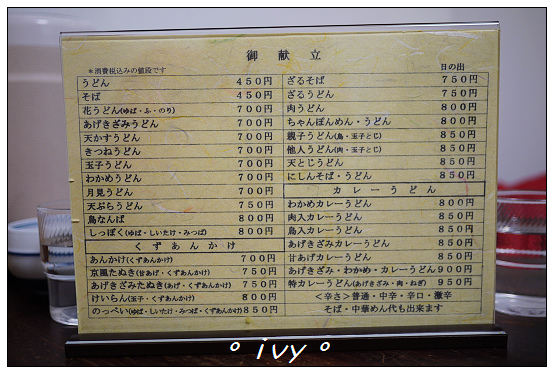 御献立
＊消費税込みの値段です
日の出
うどん 450円
そば 450円
花うどん(ゆば・ふ・のり) 700円
あげきざみうどん 700円
天かすうどん 700円
きつねうどん 700円
玉子うどん 700円
わかめうどん 700円
月見うどん 700円
天ぷらうどん 750円
鳥なんば 800円
しっぽく(ゆば・しいたけ・みつば) 800円
くずあんかけ
あんかけ(くずあんかけ) 700円
京風たぬき(甘あげ・くずあんかけ) 750円
あげきざみたぬき(あげ・くずあんかけ) 750円
けいらん(玉子・くずあんかけ) 800円
のっぺい(ゆば・しいたけ・みつば・くずあんかけ) 850円
ざるそば 750円
ざるうどん 750円
肉うどん 800円
ちゃんぽんめん・うどん 800円
親子うどん(鳥・玉子とじ) 850円
他人うどん(肉・玉子とじ) 850円
天とじうどん 850円
にしんそば・うどん 850円
カレーうどん
わかめカレーうどん 800円
肉入カレーうどん 850円
鳥入カレーうどん 850円
あげきざみカレーうどん 850円
甘あげカレーうどん 850円
あげきざみ・わかめ・カレーうどん 900円
特カレーうどん(あげきざみ・肉・ねぎ) 950円
＜辛さ＞普通・中辛・辛口・激辛
そば・中華めん代も出来ます
° ivy °